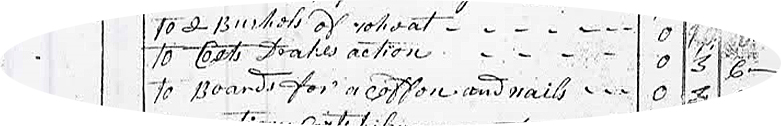 To 2 Bushels of wheat - - - - - - 0
To Costs Drakes action - - - - - 0 3 6
To Boards for a coffon and nails - - - 0